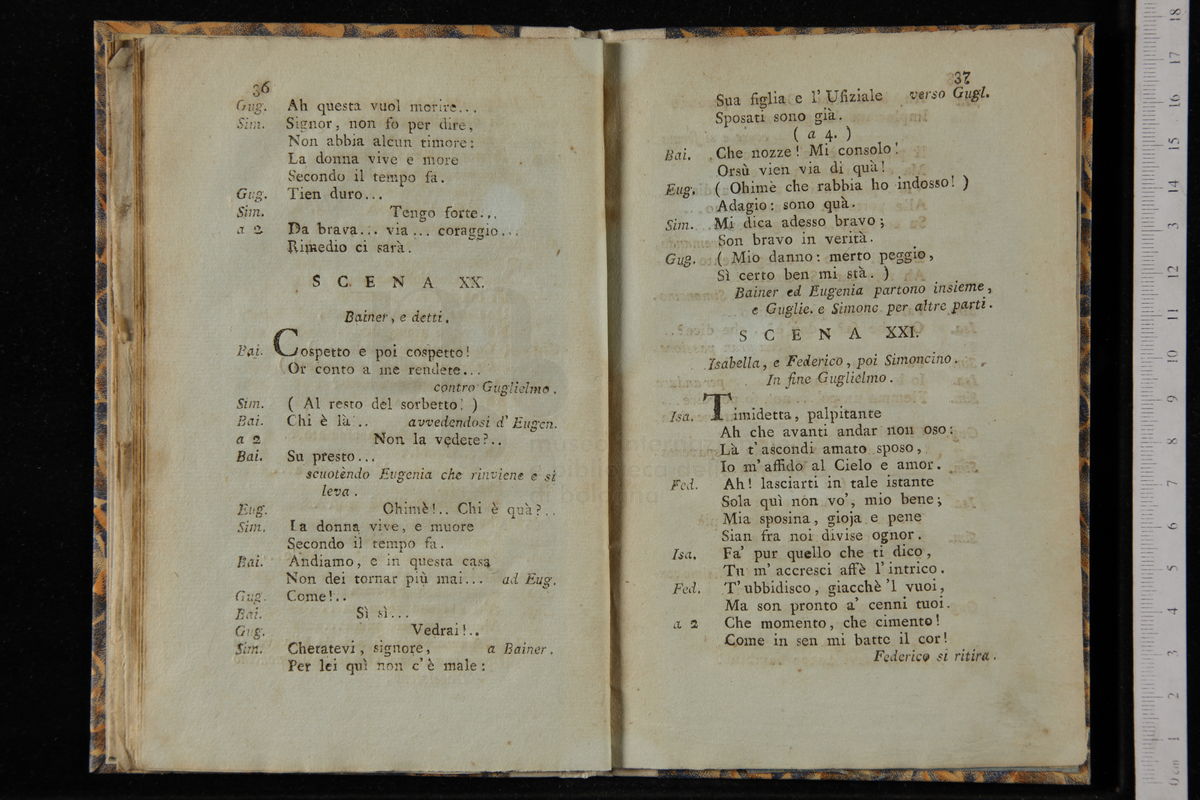 36
Gug. Ah questa vuol morire...
Sim. Signor, non fo per dire,
Non abbia alcun timore:
La donna vive e more
Secondo il tempo fa.
Gug. Tien duro...
Sim. Tengo forte...
a 2 Da brava... via... coraggio...
Rimedio ci sarà.
SCENA XX.
Bainer, e detti.
Bai. Cospetto e poi cospetto!
Or conto a me rendete...
contro Guglielmo.
Sim. ( Al resto del sorbetto! )
Bai. Chi è là... avvedendosi d' Eugen.
a 2 Non la vedete?..
Bai. Su presto...
scuotèndo Eugenia che rinviene e si
leva.
Eug. Ohimè!.. Chi è quà?..
Sim. La donna vive, e muore
Secondo il tempo fa.
Bai. Andiamo, e in questa casa
Non dei tornar più mai... ad Eug.
Gug. Come!..
Bai. Sì sì...
Gug. Vedrai!..
Sim. Chetatevi, signore, a Bainer.
Per lei quì non c'è male:
37
Sua figlia e l' Ufiziale verso Gugl.
Sposati sono già.
( a 4. )
Bai. Che nozze! Mi consolo!
Orsù vien via di quà!
Eug. ( Ohimè che rabbia ho indosso! )
Adagio: sono quà.
Sim. Mi dica adesso bravo;
Son bravo in verità.
Gug. ( Mio danno: merto peggio,
Sì certo ben mi stà. )
Bainer ed Eugenia partono insieme,
e Guglie. e Simone per altre parti.
SCENA XXI.
Isabella, e Federico, poi Simoncino.
In fine Guglielmo.
Isa. Timidetta, palpitante
Ah che avanti andar non oso:
Là t'ascondi amato sposo,
Io m'affido al Cielo e amor.
Fed. Ah! lasciarti in tale istante
Sola quì non vo', mio bene;
Mia sposina, gioja e pene
Sian fra noi divise ognor.
Isa. Fa' pur quello che ti dico,
Tu m'accresci affè l'intrico.
Fed. T'ubbidisco, giacchè 'l vuoi,
Ma son pronto a' cenni tuoi.
a 2 Che momento, che cimento!
Come in sen mi batte il cor!
Federico si ritira.